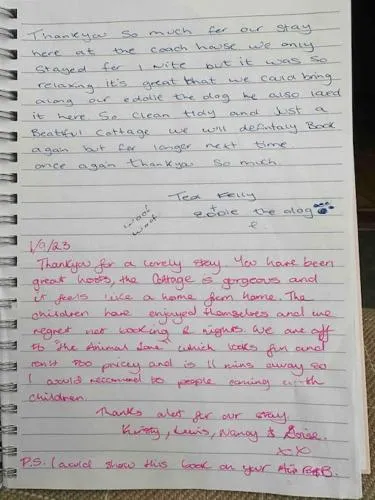 Thankyou so much for our stay
here at the coach house we only
stayed for 1 nite but it was so
relaxing it's great that we could bring
along our eddie the dog he also loved
it here. So clean tidy and just a
Beatiful Cottage we will defintaly Book
again but for longer next time
once again thankyou so much.
Tea Kelly
+ eddie the dog
woof
woof
1/9/23
Thankyou for a lovely stay. You have been
great hosts, the Cottage is gorgeous and
it feels like a home from home. The
children have enjoyed themselves and we
regret not booking 2 nights. We are off
to "The Animal Farm" which looks fun and
isn't too pricey and is 11 mins away so
I would recommend to people coming with
children.
Thanks alot for our stay.
Kirsty, Lewis, Nancy &
xx
P.S. I would show this book on your Air B&B.